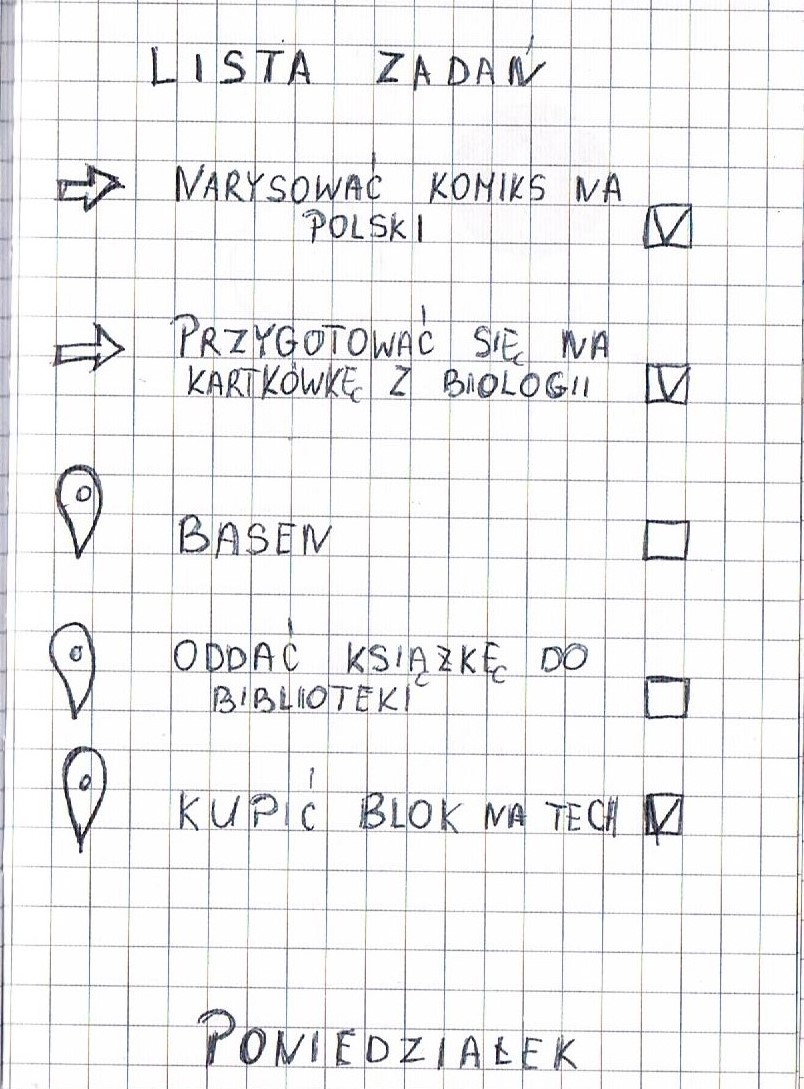 LISTA ZADAŃ
NARYSOWAĆ KOMIKS NA
POLSKI
PRZYGOTOWAĆ SIĘ NA
KARTKÓWKĘ Z BIOLOGII
BASEN
ODDAĆ KSIĄŻKĘ DO
BIBLIOTEKI
KUPIĆ BLOK NA TECH
PONIEDZIAŁEK